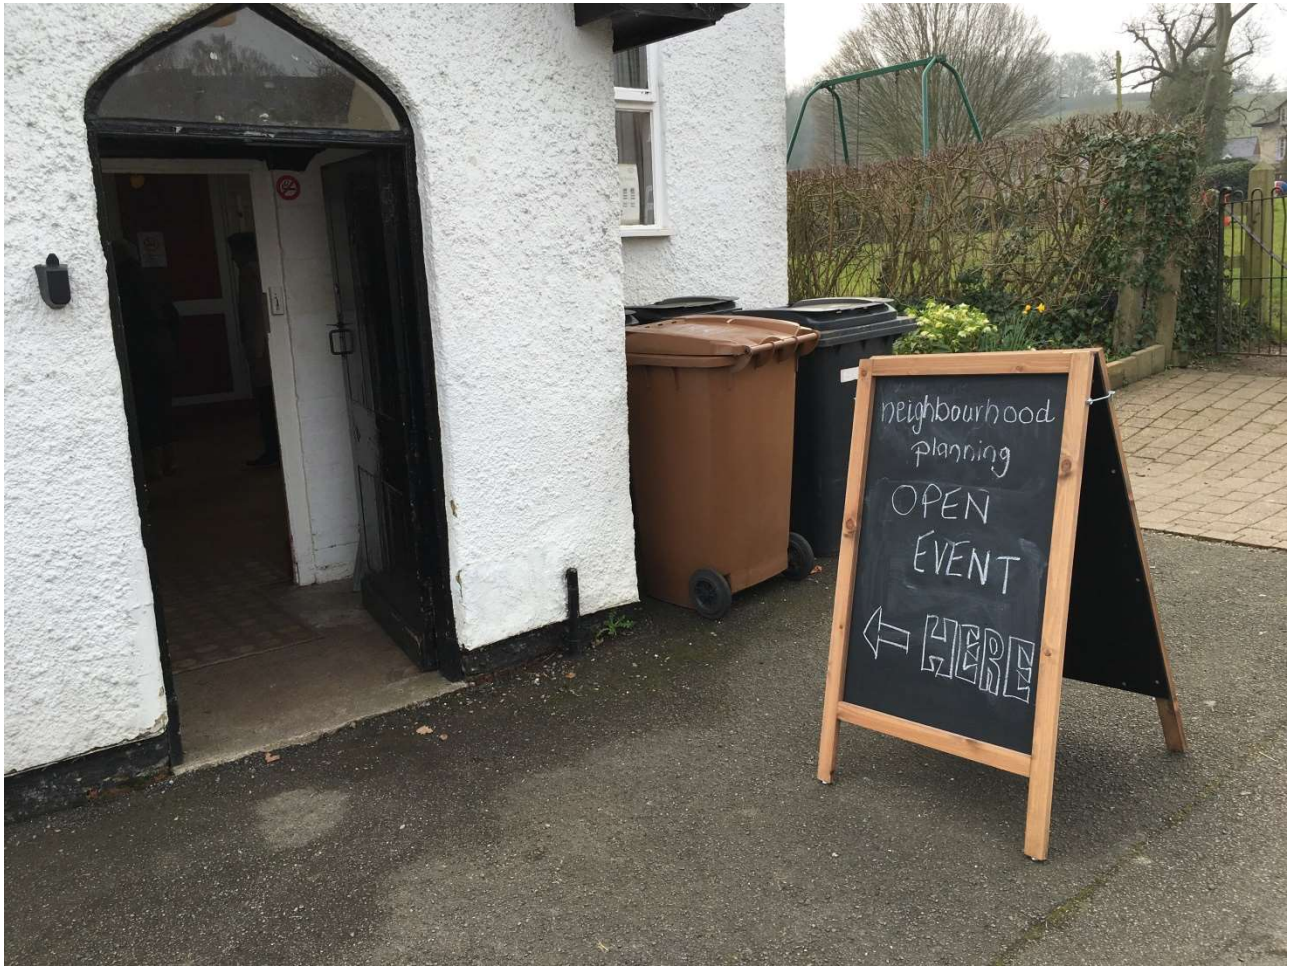 neighbourhood
planning
OPEN
EVENT
HERE